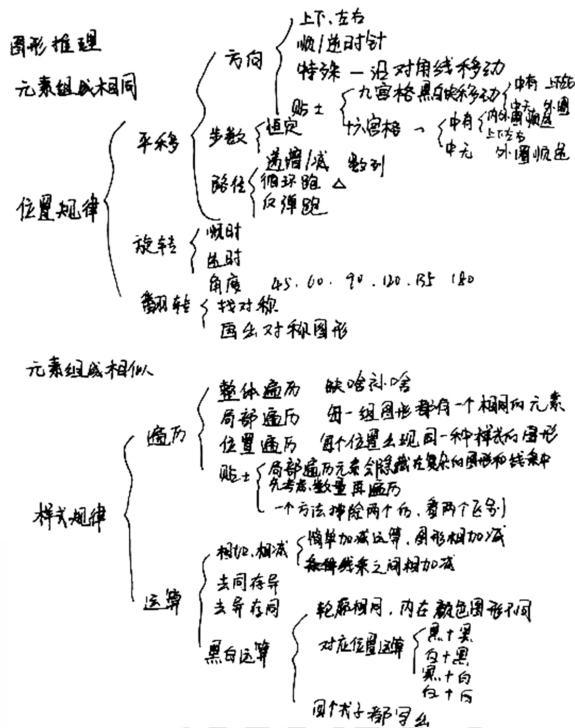 图形推理
元素组成相同
位置规律
平移
方向
上下、左右
顺/逆时针
特殊 — 沿对角线移动
贴士
九宫格黑块移动
中有 上下左右
中无 外圈
十六宫格
中有
内外圈顺逆
上下左右
中无 外圈顺逆
步数
恒定
递增/减 数列
路径
循环跑 △
反弹跑
旋转
顺时
逆时
角度 45. 60. 90. 120. 135 180
翻转
找对称
画出对称图形
元素组成相似
样式规律
遍历
整体遍历 缺啥补啥
局部遍历 每一组图形都有一个相同的元素
位置遍历 每个位置出现同一种样式的图形
贴士
局部遍历元素会隐藏在复杂的图形和线条中
先考虑数量再遍历
一个方法排除两个后,看两个区别
运算
相加、相减
简单加减运算,图形相加减
线条之间相加减
去同存异
去异存同
黑白运算
轮廓相同,内在颜色图形不同
对应位置运算
黑+黑
白+黑
黑+白
白+白
四个式子都写出